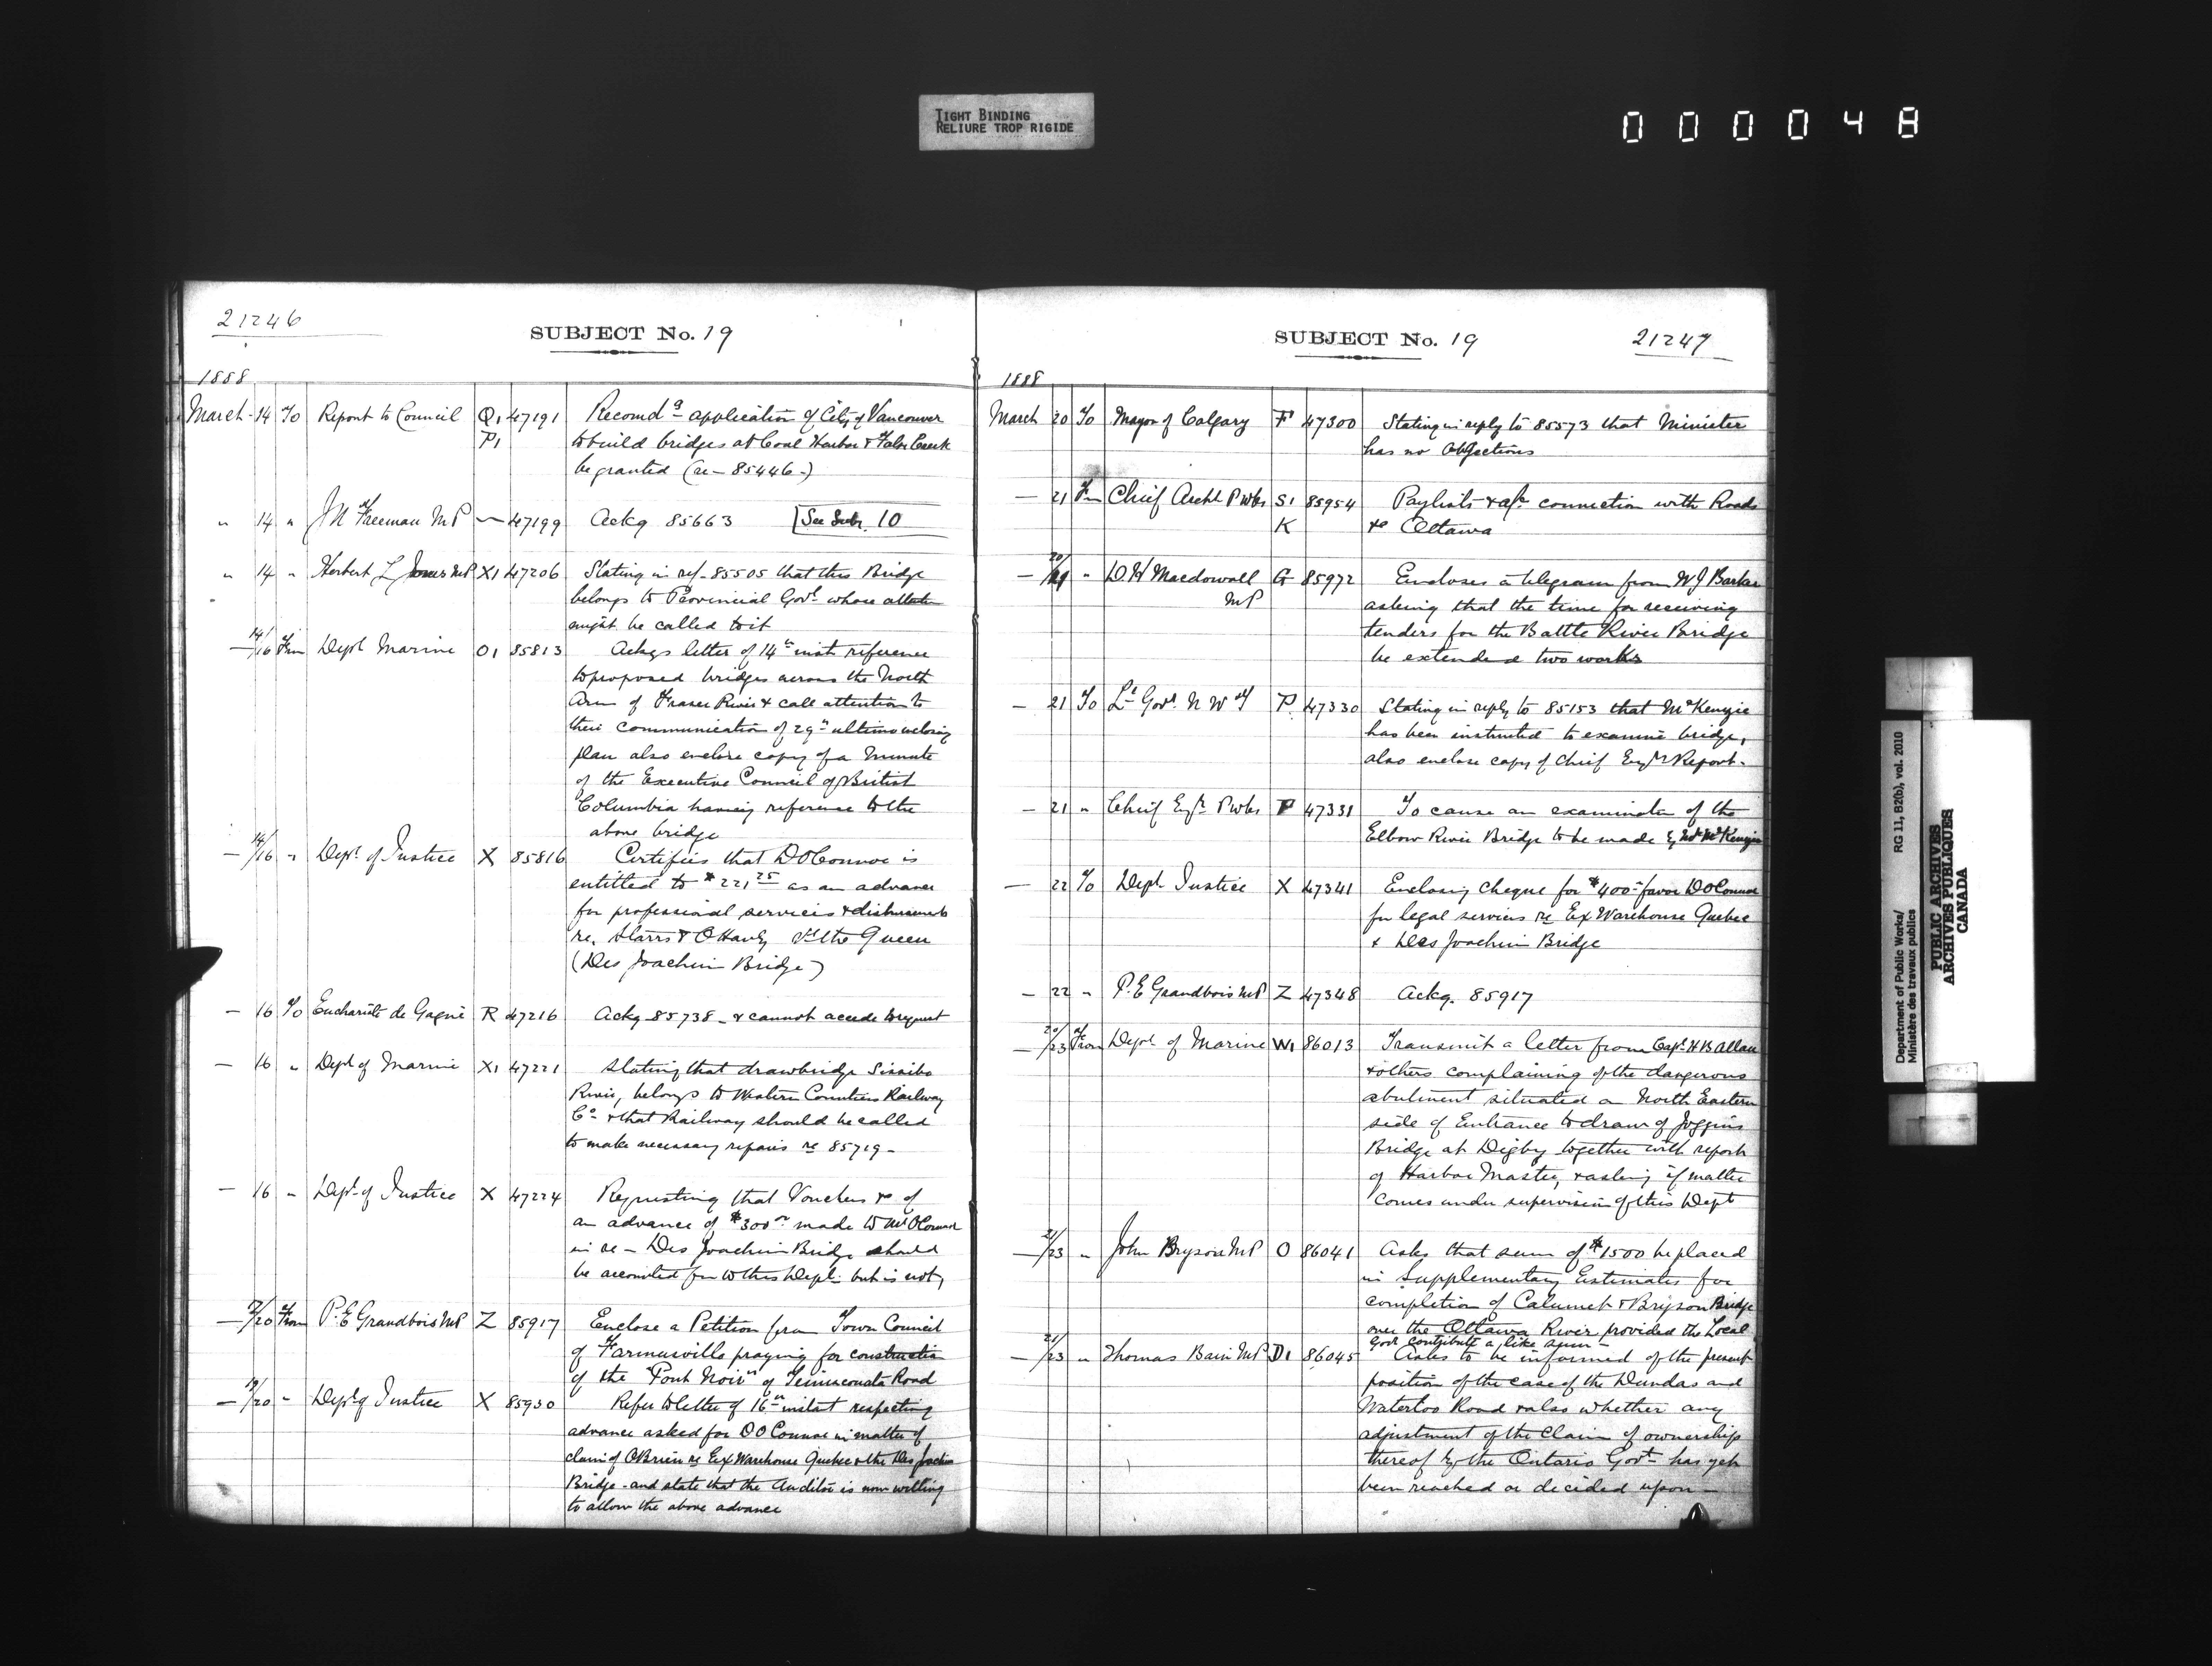 TIGHT BINDING
RELIURE TROP RIGIDE
000048
21246
SUBJECT No. 19
1888
March 14 To Report to Council Q1 47191 Recomdg application of City of Vancouver
P1 to build bridges at Coal Harbor & False Creek
be granted (re - 85446 -)
" 14 " J N Freeman MP — 47199 Ackg 85663 See Sub. 10
" 14 " Herbert L Jones MP X1 47206 Stating in ref - 85505 that this Bridge
belongs to Provincial Govt whose attention
might be called to it
— 14/16 From Dept Marine O1 85813 Ackgs letter of 14th inst reference
to proposed bridges across the North
Arm of Fraser River & call attention to
their communication of 29th ultimo enclosing
plan also enclose copy of a Minute
of the Executive Council of British
Columbia having reference to the
above bridge
— 14/16 " Dept. of Justice X 85816 Certifies that D O'Connor is
entitled to $221 25 as an advance
for professional services & disbursements
re. Starrs & O'Hanly vs the Queen
(Des Joachim Bridge)
— 16 To Euchariste de Gagné R 47216 Ackg 85738 - & cannot accede to request
— 16 " Dept of Marine X1 47221 Stating that drawbridge Sissibo
River, belongs to Western Counties Railway
Co. & that Railway should be called
to make necessary repairs re 85719 -
— 16 " Dept. of Justice X 47224 Requesting that Vouchers &c of
an advance of $300 made to Mr O'Connor
in re - Des Joachim Bridge should
be accounted for to this Dept. but is not,
— /20 From P. E Grandbois MP Z 85917 Enclose a Petition from Town Council
of praying for construction
of the "Pont Noir" of Temiscouata Road
— 19/20 " Dept of Justice X 85930 Refer to letter of 16th instant respecting
advance asked for D O'Connor in matter of
claim of O'Brien re Ex Warehouse Quebec & the Des Joachim
Bridge - and state that the Auditor is now willing
to allow the above advance
SUBJECT No. 19
21247
1888
March 20 To Mayor of Calgary F 47300 Stating in reply to 85573 that Minister
has no Objections
— 21 Fm Chief Archt P Wks S1 85954 Paylists & a/c connection with Roads
K &c Ottawa
— 20/21 " D H Macdowall G 85972 Encloses a telegram from W J Barker
MP asking that the time for receiving
tenders for the Battle River Bridge
be extended two works
— 21 To Lt Govr. N W T P. 47330 Stating in reply to 85153 that McKenzie
has been instructed to examine bridge,
also enclose copy of Chief Engr Report.
— 21 " Chief Engr. P Wks P 47331 To cause an examination of the
Elbow River Bridge to be made by McKenzie
— 22 To Dept. Justice X 47341 Enclosing cheque for $400 - favor D O'Connor
for legal services re Ex Warehouse Quebec
& Des Joachim Bridge
— 22 " P. E Grandbois MP Z 47348 Ackg. 85917
— 20/23 From Dept of Marine W1 86013 Transmit a letter from Capt H B Allan
& others complaining of the dangerous
abutment situated on North Eastern
side of Entrance to draw of Joggins
Bridge at Digby together with report
of Harbor Master, & asking if matter
comes under supervision of this Dept
— 21/23 " John Bryson MP O 86041 Asks that sum of $1500 be placed
in Supplementary Estimates for
completion of Calumet & Bryson Bridge
over the Ottawa River provided the Local
Govt contribute a like sum -
— 21/23 " Thomas Bain MP D1 86045 Asks to be informed of the present
position of the case of the Dundas and
Waterloo Road & also whether any
adjustment of the claim of ownership
thereof by the Ontario Govt. has yet
been reached or decided upon -
Department of Public Works/ RG 11, B2(b), vol. 2010
Ministère des travaux publics
PUBLIC ARCHIVES
ARCHIVES PUBLIQUES
CANADA